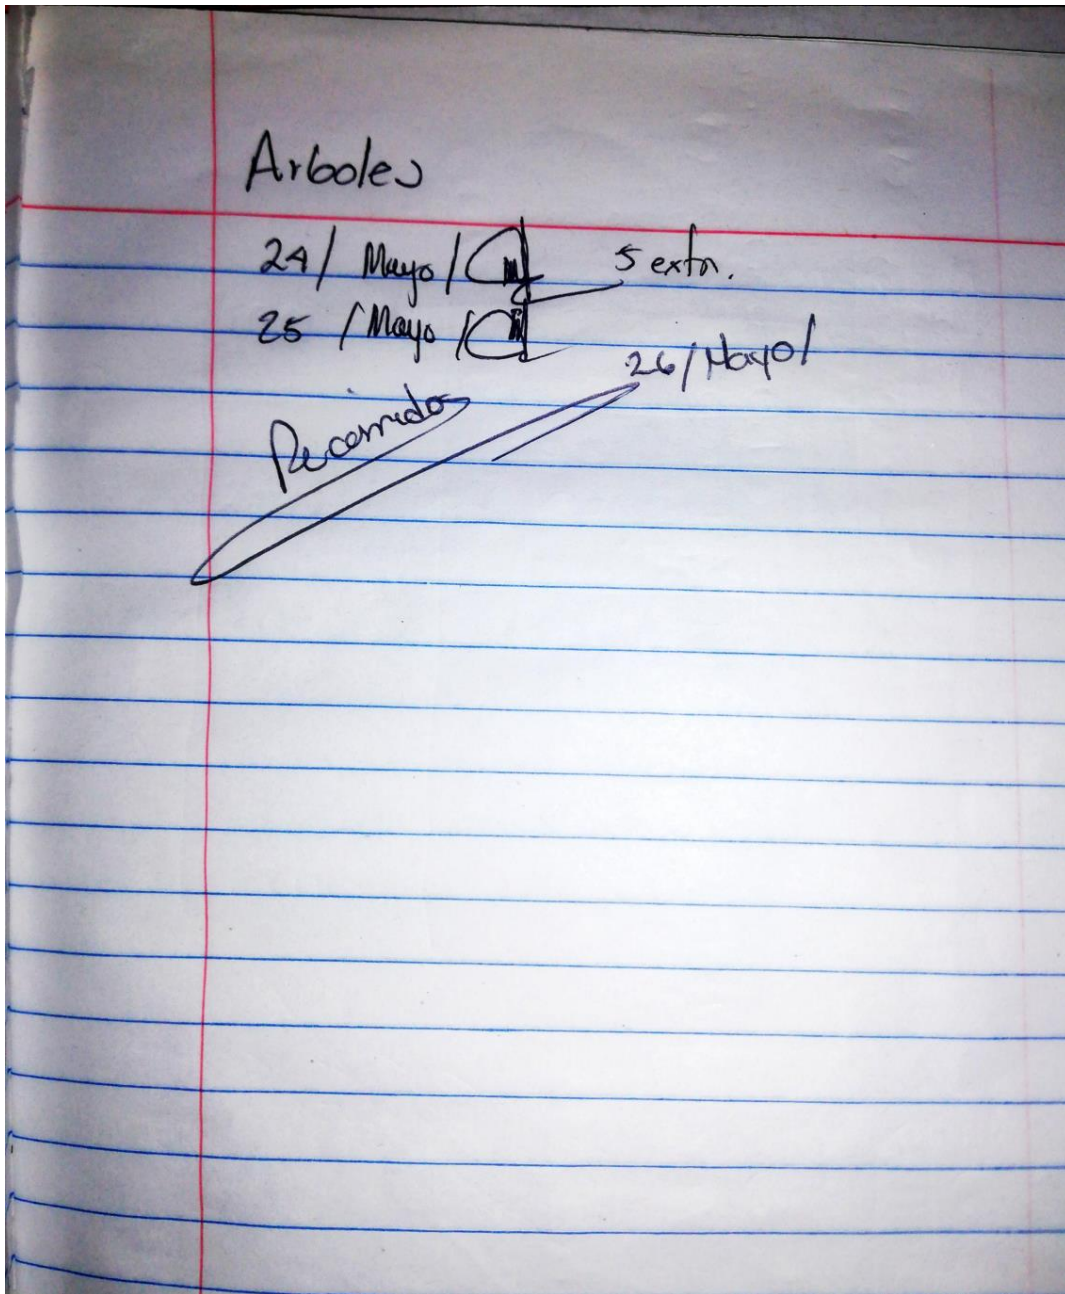 Arboles
24/ Mayo/
5 extra.
25 /Mayo/
26/Mayo/
Recorridos